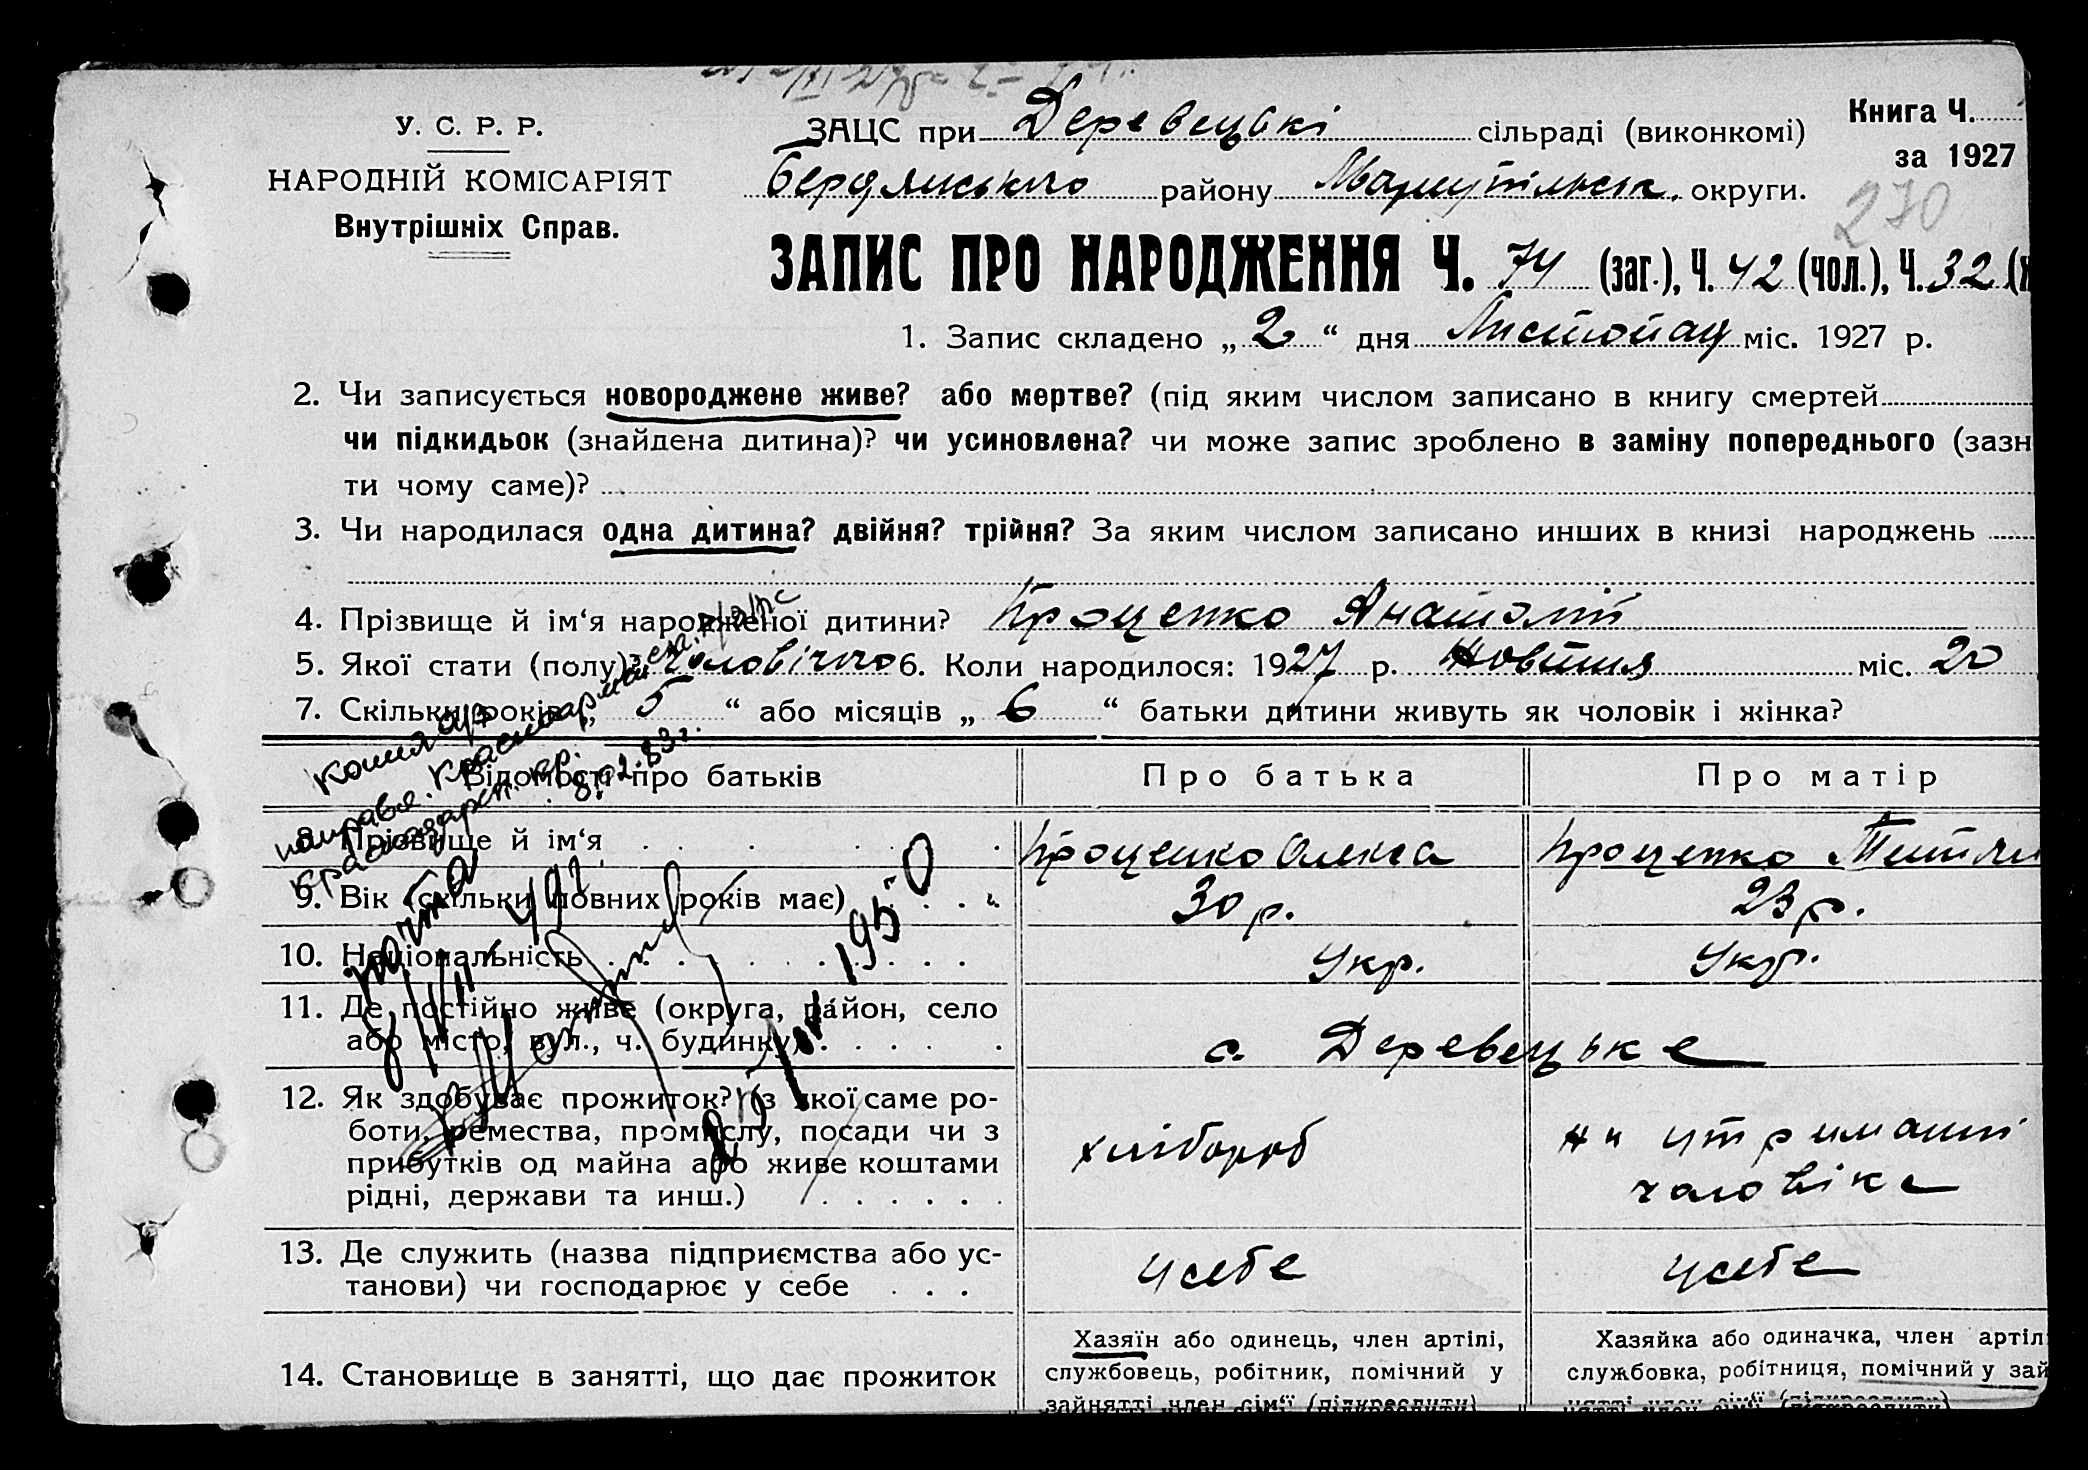 У. С. Р. Р.
НАРОДНІЙ КОМІСАРІЯТ
Внутрішніх Справ.
ЗАЦС при Деревецькі сільраді (виконкомі)
Бердянського району Маріупільськ. округи.
Книга Ч.
за 1927
270
ЗАПИС ПРО НАРОДЖЕННЯ Ч. 74 (заг.), Ч. 42 (чол.), Ч. 32 (ж
1. Запис складено „ 2 “ дня Листопад міс. 1927 р.
2. Чи записується новороджене живе? або мертве? (під яким числом записано в книгу смертей
чи підкидьок (знайдена дитина)? чи усиновлена? чи може запис зроблено в заміну попереднього (зазн
ти чому саме)?
3. Чи народилася одна дитина? двійня? трійня? За яким числом записано инших в книзі народжень
4. Прізвище й ім‘я народженої дитини? Проценко Анатолій
5. Якої стати (полу)? чоловічого 6. Коли народилося: 1927 р. Жовтня міс. 20
7. Скільки років „ 5 “ або місяців „ 6 “ батьки дитини живуть як чоловік і жінка?
Відомості про батьків
Про батька
Про матір
8. Прізвище й ім‘я Проценко Олекса Проценко
9. Вік (скільки повних років має) 30 р. 23 р.
10. Національність Укр. Укр.
11. Де постійно живе (округа, район, село
або місто, вул., ч. будинку) с. Деревецьке
12. Як здобуває прожиток? (з якої саме ро-
боти, ремества, промислу, посади чи з
прибутків од майна або живе коштами
рідні, держави та инш.)
хлібороб
на утриманні
чоловіка
13. Де служить (назва підприємства або ус-
танови) чи господарює у себе
у себе
у себе
14. Становище в занятті, що дає прожиток
Хазяїн або одинець, член артілі,
службовець, робітник, помічний у
зайнятті член сім‘ї (підкреслити)
Хазяйка або одиначка, член артіл
службовка, робітниця, помічний у зай
нятті член сім‘ї (підкреслити)
8.02.83г.
1950